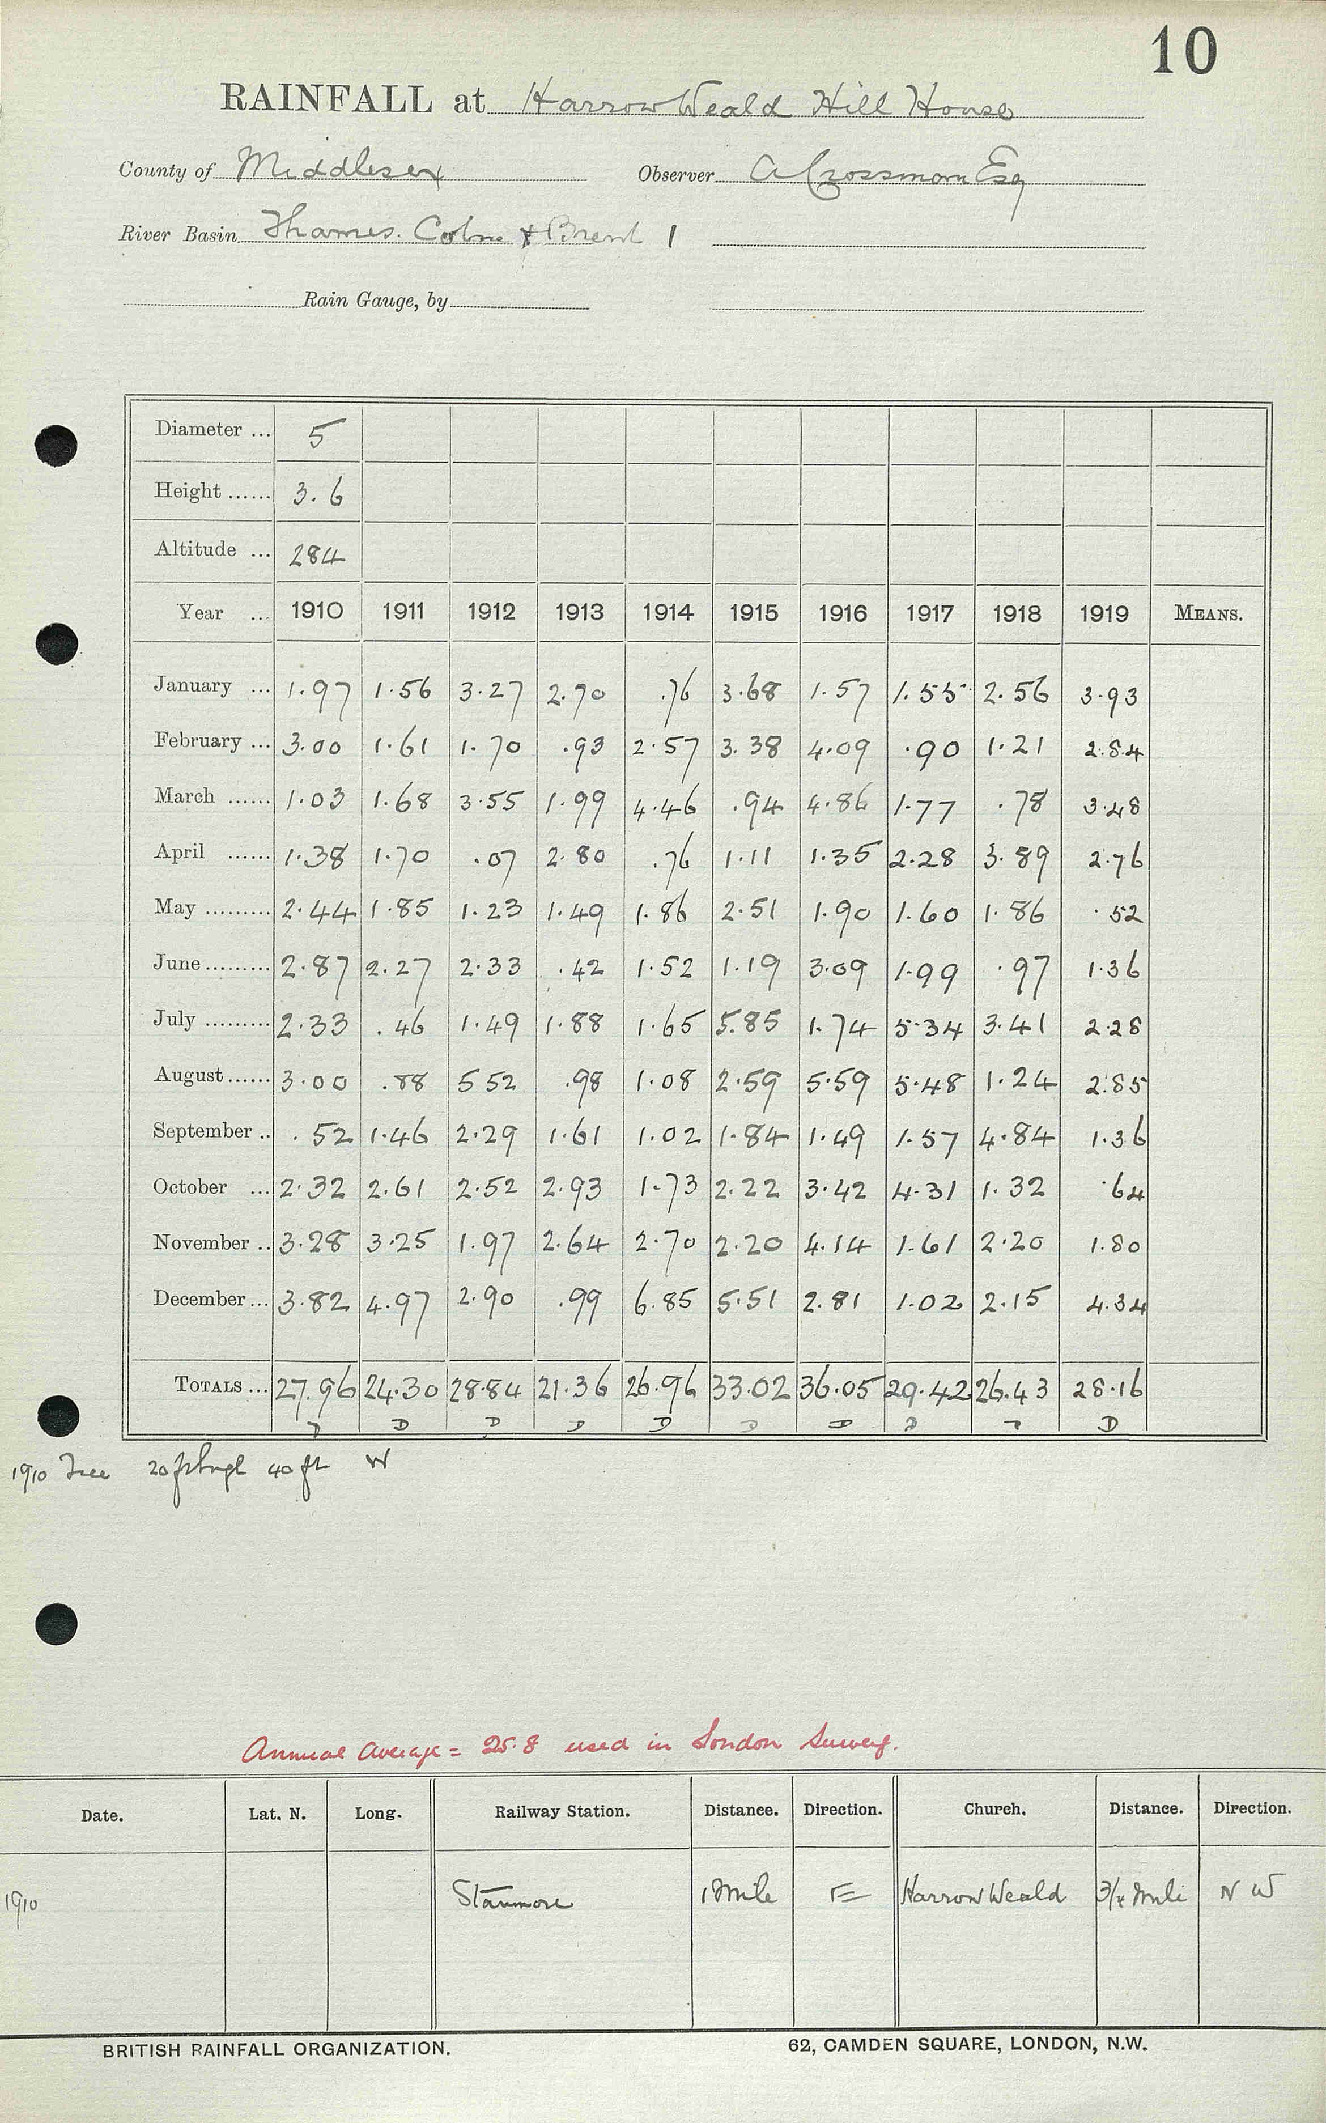 10
RAINFALL at Harrow Weald Hill House
County of Middlesex Observer A Crossman Esq
River Basin Thames. Colne & Brent 1
Rain Gauge, by
Diameter ... 5
Height ...... 3.6
Altitude ... 284
Year ... 1910 1911 1912 1913 1914 1915 1916 1917 1918 1919 MEANS.
January ... 1.97 1.56 3.27 2.70 .76 3.68 1.57 1.55 2.56 3.93
February ... 3.00 1.61 1.70 .93 2.57 3.38 4.09 .90 1.21 2.84
March ...... 1.03 1.68 3.55 1.99 4.46 .94 4.86 1.77 .78 3.48
April ...... 1.38 1.70 .07 2.80 .76 1.11 1.35 2.28 3.89 2.76
May ......... 2.44 1.85 1.23 1.49 1.86 2.51 1.90 1.60 1.86 .52
June ......... 2.87 2.27 2.33 .42 1.52 1.19 3.09 1.99 .97 1.36
July ......... 2.33 .46 1.49 1.88 1.65 5.85 1.74 5.34 3.41 2.28
August ...... 3.00 .88 5 52 .98 1.08 2.59 5.59 5.48 1.24 2.85
September .. .52 1.46 2.29 1.61 1.02 1.84 1.49 1.57 4.84 1.36
October ... 2.32 2.61 2.52 2.93 1.73 2.22 3.42 4.31 1.32 .64
November .. 3.28 3.25 1.97 2.64 2.70 2.20 4.14 1.61 2.20 1.80
December ... 3.82 4.97 2.90 .99 6.85 5.51 2.81 1.02 2.15 4.34
TOTALS ... 27.96 24.30 28.84 21.36 26.96 33.02 36.05 29.42 26.43 28.16
D D D D D D D D D
1910 Tree 20 ft 40 ft W
Annual average = 25.8 used in London Survey.
Date. Lat. N. Long. Railway Station. Distance. Direction. Church. Distance. Direction.
1910 Stanmore 1 Mile E Harrow Weald 3/4 Mile N W
BRITISH RAINFALL ORGANIZATION. 62, CAMDEN SQUARE, LONDON, N.W.